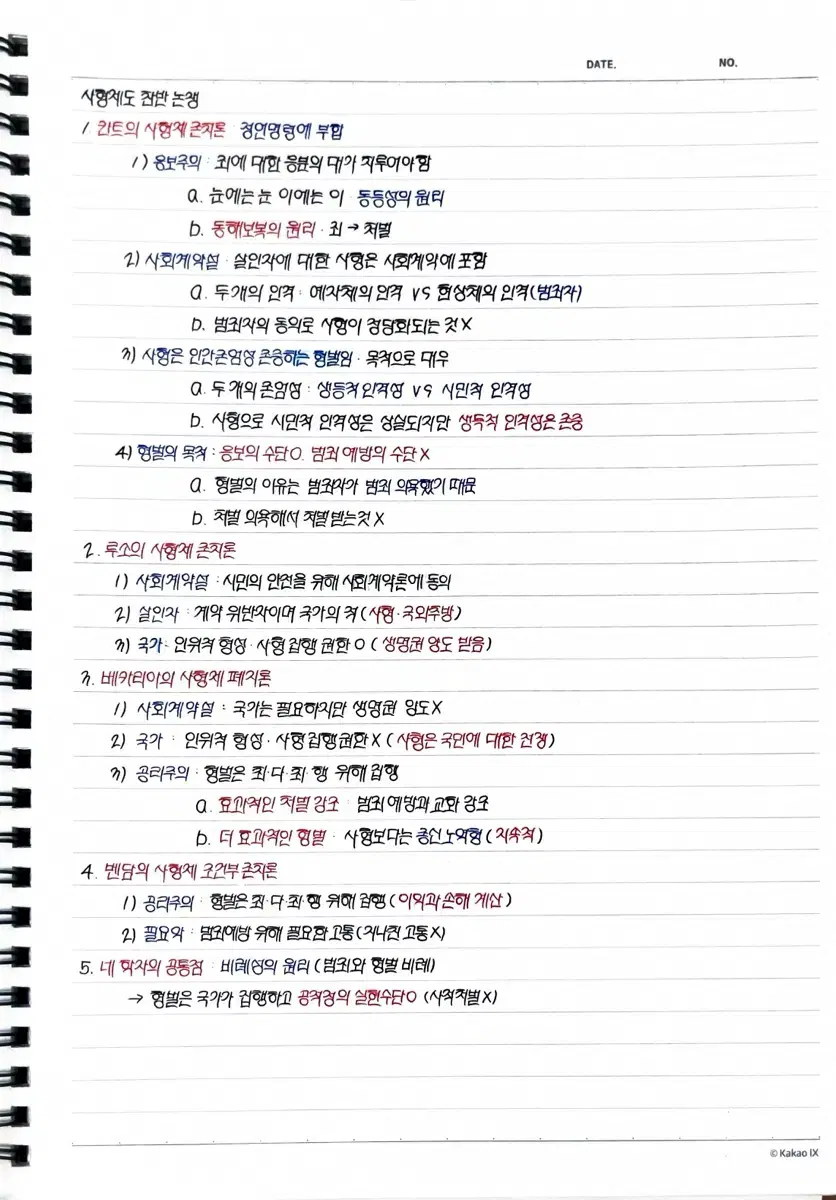 DATE. NO.
사형제도 찬반 논쟁
1. 칸트의 사형제 존치론 : 정언명령에 부합
1) 응보주의 : 죄에 대한 응분의 대가 치루어야함
a. 눈에는 눈 이에는 이 : 동등성의 원리
b. 동해보복의 원리 : 죄 → 처벌
2) 사회계약설 : 살인자에 대한 사형은 사회계약에 포함
a. 두개의 인격 : 예지체의 인격 vs 현상체의 인격(범죄자)
b. 범죄자의 동의로 사형이 정당화되는 것 X
3) 사형은 인간존엄성 존중하는 형벌임 : 목적으로 대우
a. 두개의 존엄성 : 생득적 인격성 vs 시민적 인격성
b. 사형으로 시민적 인격성은 상실되지만 생득적 인격성은 존중
4) 형벌의 목적 : 응보의 수단O. 범죄 예방의 수단 X
a. 형벌의 이유는 범죄자가 범죄 의욕했기 때문
b. 처벌 의욕해서 처벌 받는것 X
2. 루소의 사형제 존치론
1) 사회계약설 : 시민의 안전을 위해 사회계약론에 동의
2) 살인자 : 계약 위반자이며 국가의 적 (사형·국외추방)
3) 국가 : 인위적 형성 · 사형 집행 권한 O (생명권 양도 받음)
3. 베카리아의 사형제 폐지론
1) 사회계약설 : 국가는 필요하지만 생명권 양도X
2) 국가 : 인위적 형성 · 사형집행권한 X (사형은 국민에 대한 전쟁)
3) 공리주의 : 형벌은 최·다·최·행 위해 집행
a. 효과적인 처벌 강조 : 범죄 예방과 교화 강조
b. 더 효과적인 형벌 : 사형보다는 종신노역형 (지속적)
4. 벤담의 사형제 조건부 존치론
1) 공리주의 : 형벌은 최·다·최·행 위해 집행 (이익과 손해 계산)
2) 필요악 : 범죄예방 위해 필요한 고통 (지나친 고통X)
5. 네 학자의 공통점 : 비례성의 원리 (범죄와 형벌 비례)
→ 형벌은 국가가 집행하고 공적정의 실현수단O (사적처벌 X)
© Kakao IX